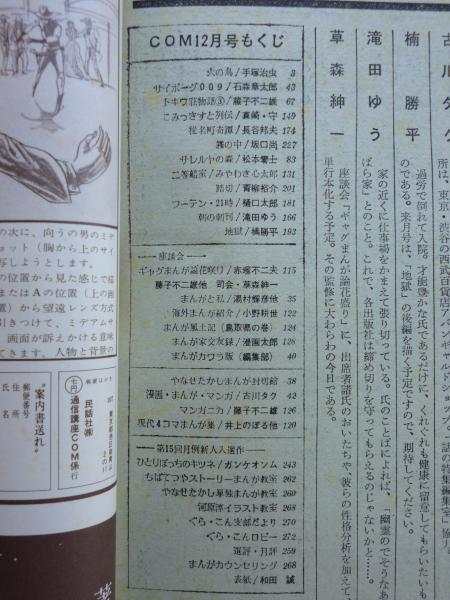 COM12月号もくじ
火の鳥/手塚治虫 3
サイボーグ009/石森章太郎 43
トキワ荘物語③/藤子不二雄 67
こみっきすと列伝/真崎・守 149
椎名町奇譚/長谷邦夫 174
霧の中/坂口尚 227
サレルヤの森/松本零士 83
二等船室/みやわき心太郎 131
踏切/青柳裕介 201
フーテン・21時/樋口太郎 181
朝の朝刊/滝田ゆう 166
地獄/楠勝平 193
座談会
ギャグまんが論花咲り/赤塚不二夫 115
藤子不二雄他 司会・草森紳一
まんがと私/湯村輝彦 35
海外まんが紹介/小野耕世 122
まんが風土記(鳥取県の巻) 124
まんが家交友録/漫画太郎 128
まんがカワラ版(編集部) 40
やなせたかしまんが封切館 38
漫画・まんが・マンガ/古川タク 42
マンガニカ/藤子不二雄 126
現代4コマまんが集/井上のぼる他 120
第15回月例新人入選作
ひとりぼっちのキツネ/ガンケオンム 243
ちばてつやストーリーまんが教室 262
やなせたかし単独まんが教室 260
河原淳イラスト教室 268
ぐら・こん支部だより 270
ぐら・こんロビー 272
選評・月評 259
まんがカウンセリング 268
表紙/和田誠
楠勝平
滝田ゆう
草森紳一
過労で倒れて入院。才能豊かな氏であるだけに、くれぐれも健康に留意してもらいたいも
のである。来月号は、「地獄」の後編を描く予定ですので、期待してください。
家の近くに仕事場をかまえて張り切っている。氏のことばによれば、「幽霊のでそうなあ
ばら家」とのこと。これで、各出版社は締め切りを守ってもらえるのじゃないかと……。
座談会「ギャグまんが論花盛り」に、出席者諸氏のおいたちや、彼らの性格分析を加えて、
単行本化する予定。その監修に大わらわの今日である。
の次に、向うの男のミデ
ョット(胸から上のサイ
写しようとします。
の位置から見た感じで描
またはAの位置(上の画
置)から望遠レンズ方式
引きつけて、ミデアムサ
画面が訴えかける意味
てきます。人物と背景の
"案内書送れ"
民話社(株)
通信講座COM係行
住所
氏名